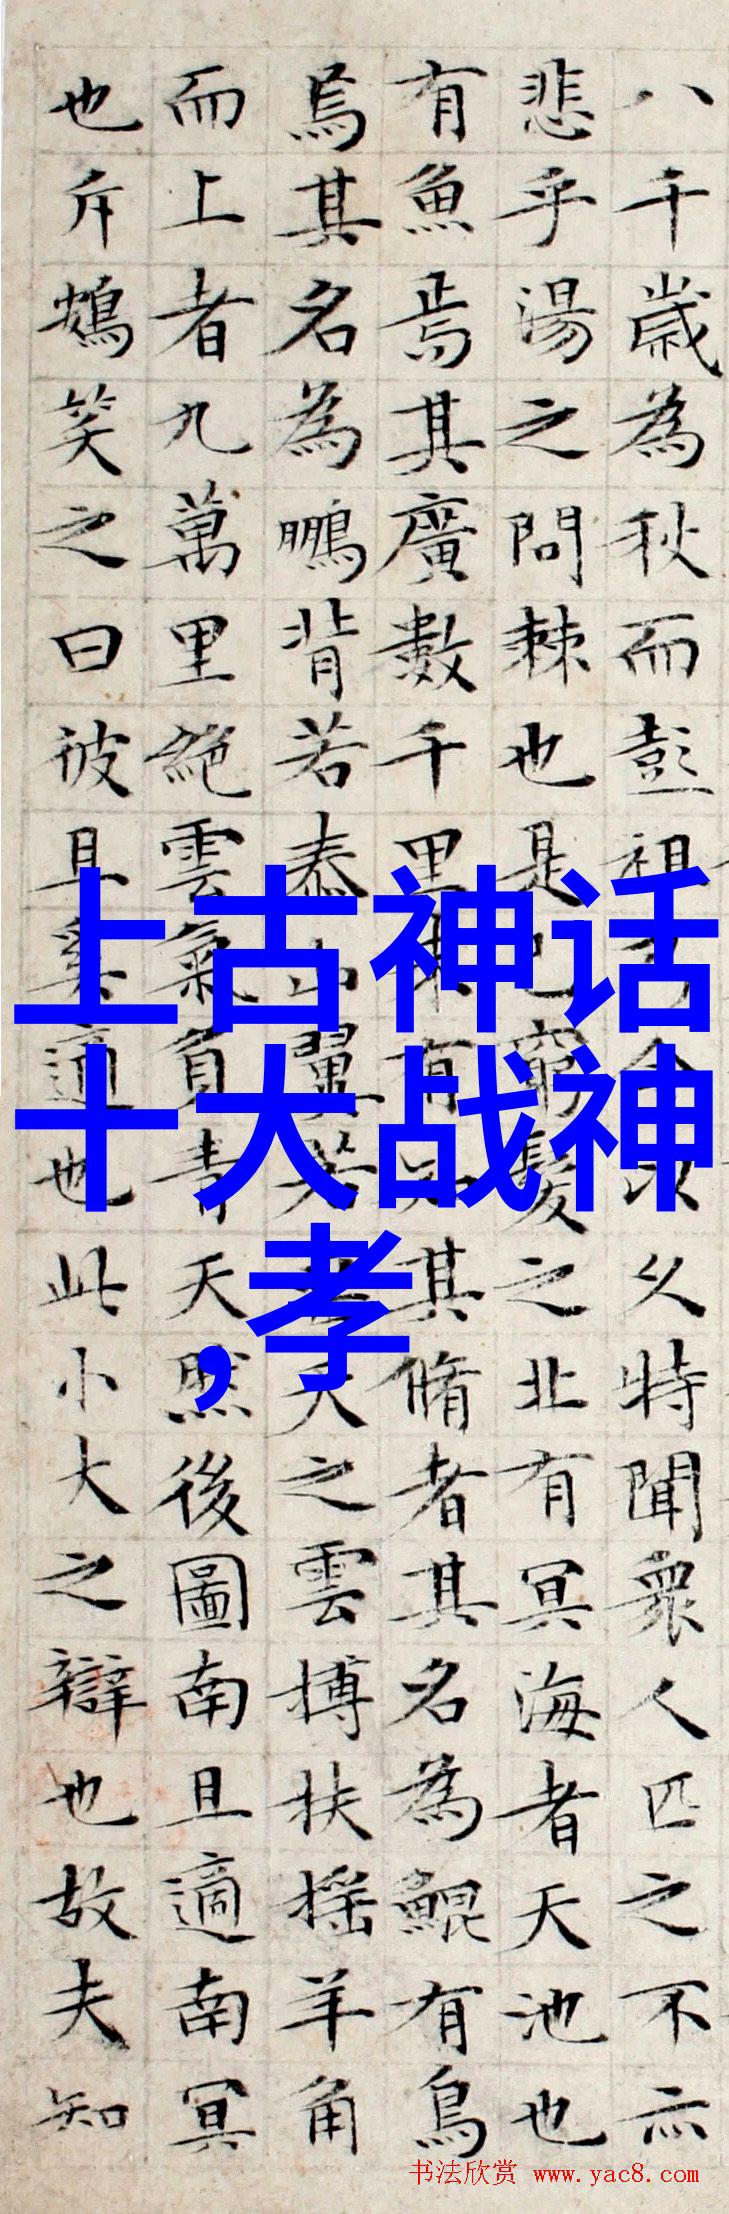 八千歲為秋而彭祖乃今以久特聞衆人匹之不亦
悲乎湯之問棘也是已窮髮之北有冥海者天池也
有魚焉其廣數千里未有知其脩者其名為鯤有鳥
焉其名為鵬背若泰山翼若垂天之雲搏扶搖羊角
而上者九萬里絶雲氣負青天然後圖南且適南冥
也斥鴳笑之曰彼且奚適也此小大之辯也故夫知
上古神话
十大战神
,孝
书法欣赏 www.yac8.com